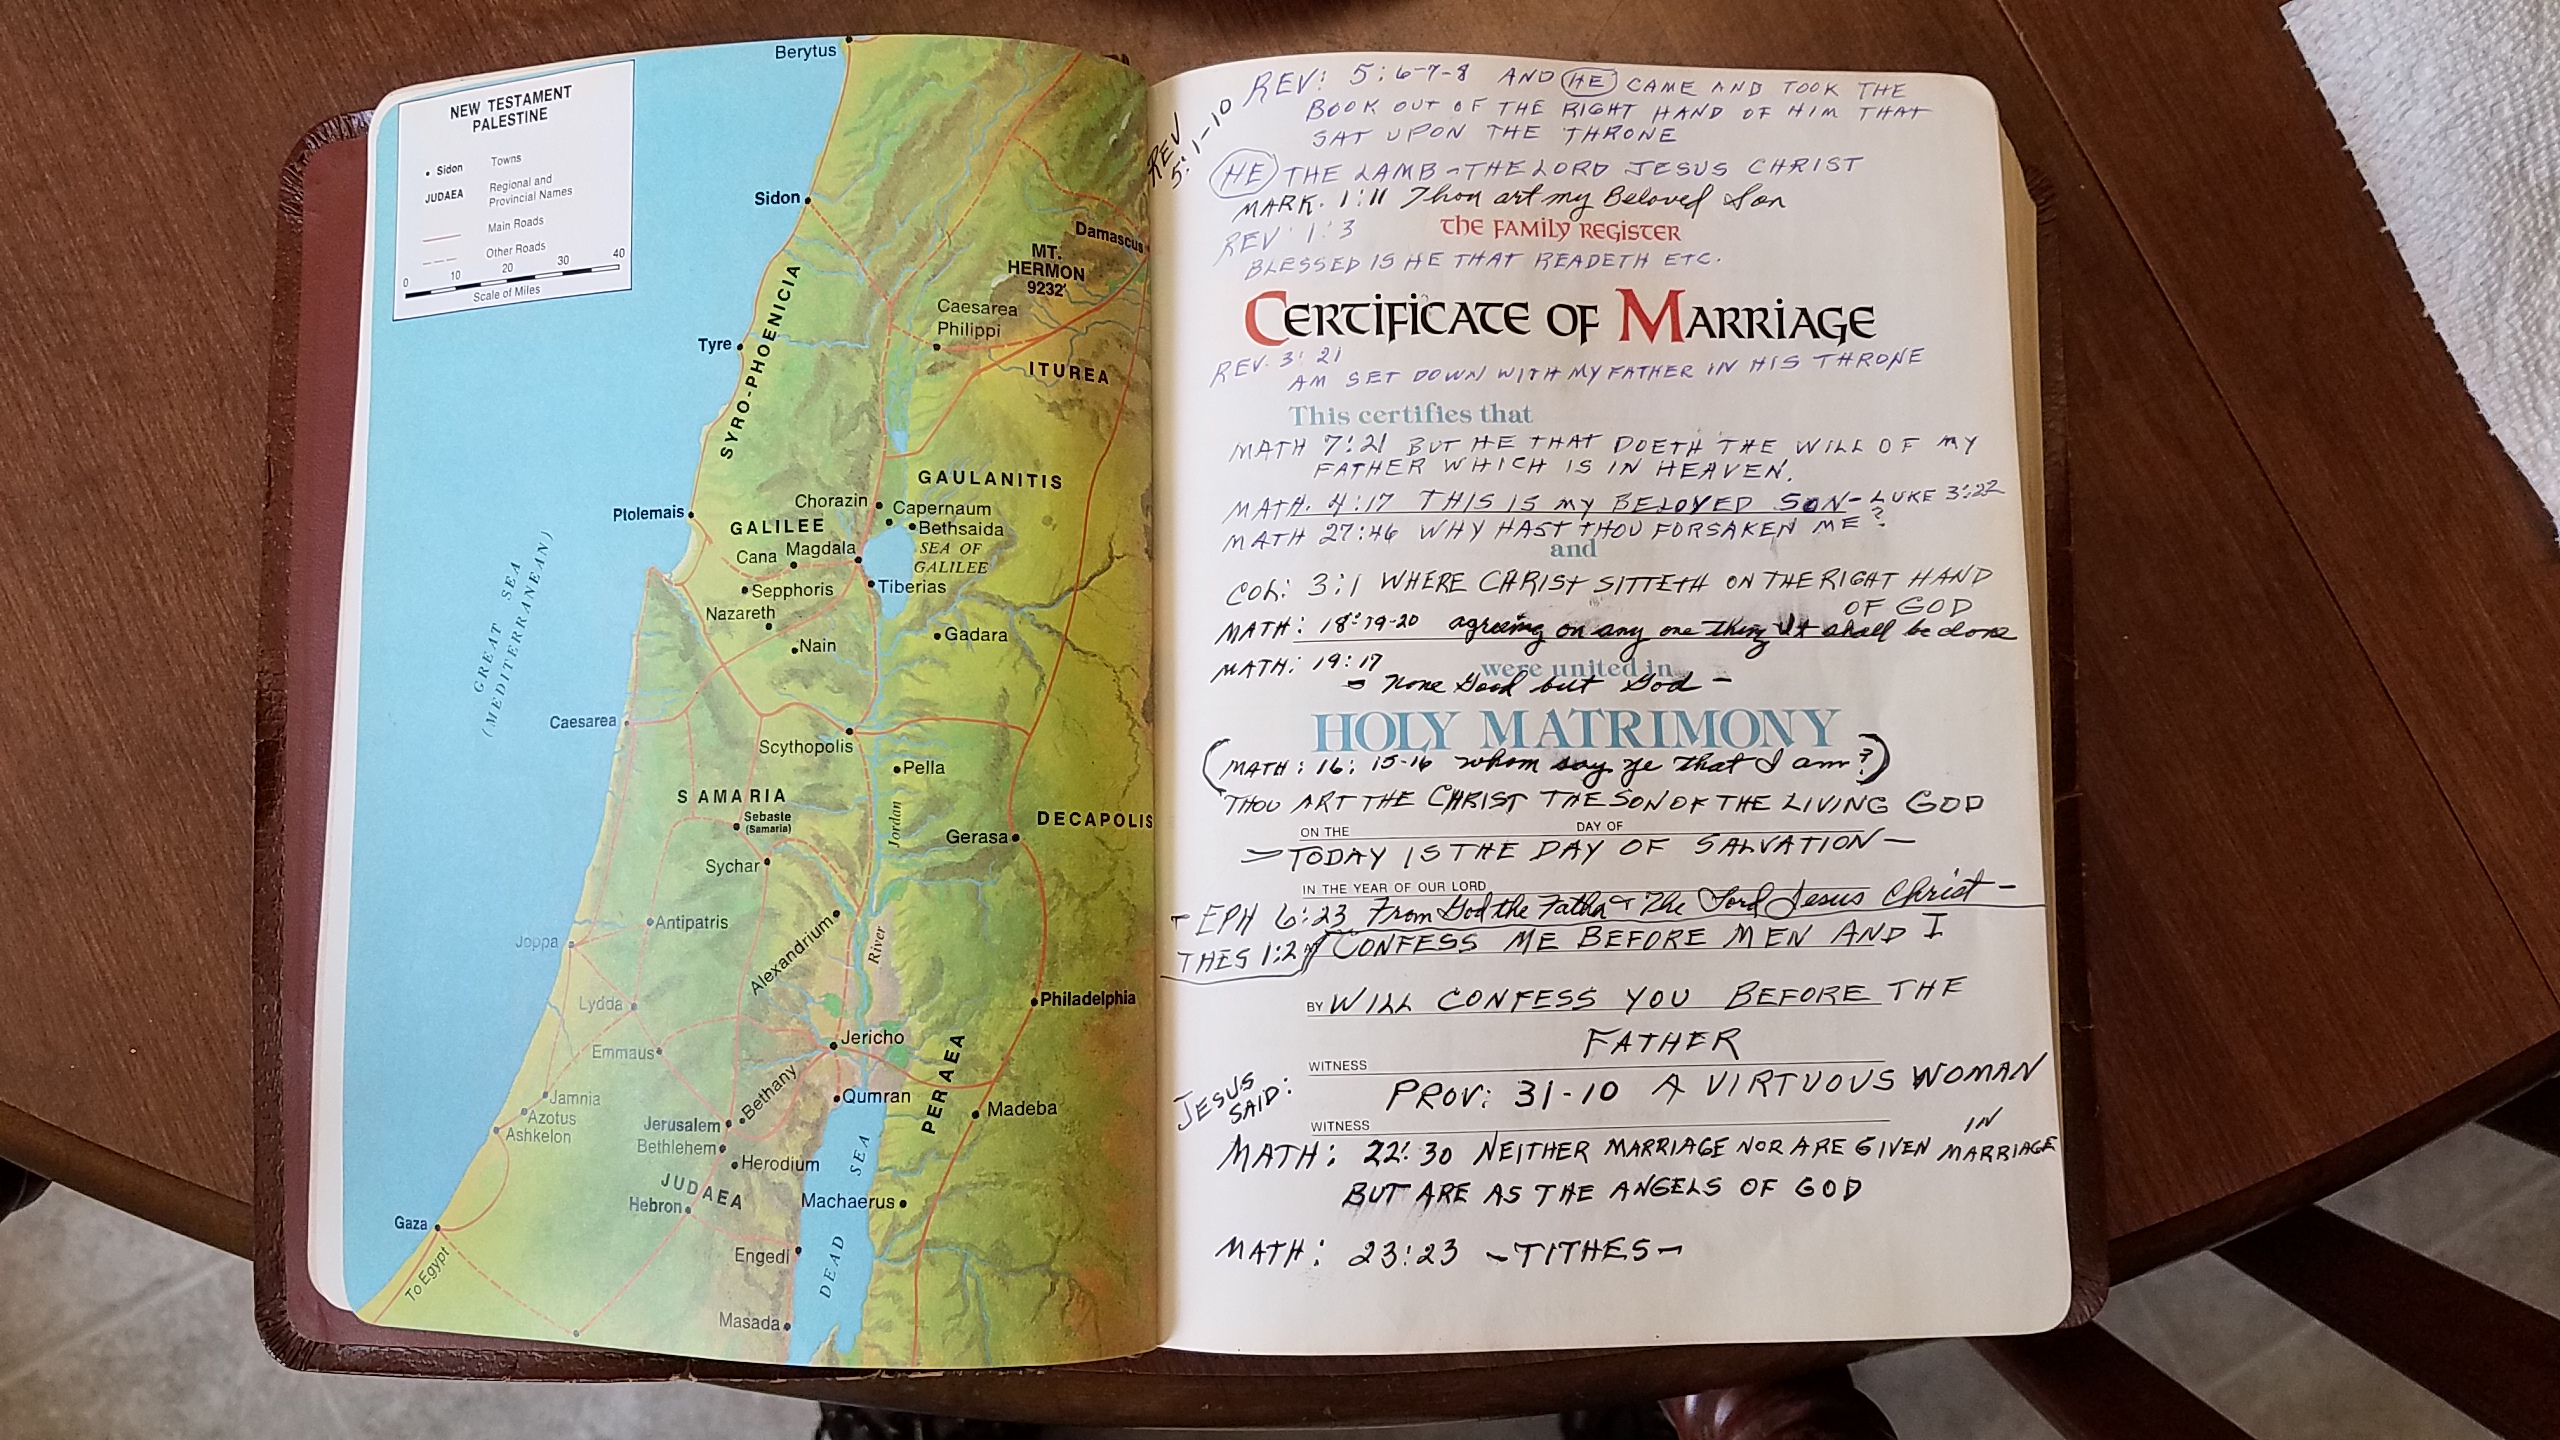 NEW TESTAMENT
PALESTINE
• Sidon Towns
JUDAEA Regional and
Provincial Names
Main Roads
Other Roads
0 10 20 30 40
Scale of Miles
Berytus
Sidon
Damascus
MT.
HERMON
9232'
SYRO-PHOENICIA
Caesarea
Philippi
Tyre
ITUREA
GAULANITIS
Chorazin
Capernaum
Ptolemais
GALILEE
Bethsaida
Cana
Magdala
SEA OF
GALILEE
Sepphoris
Tiberias
Nazareth
Gadara
Nain
GREAT SEA
(MEDITERRANEAN)
Caesarea
Scythopolis
Pella
SAMARIA
Sebaste
(Samaria)
Jordan
River
DECAPOLIS
Gerasa
Sychar
Antipatris
Alexandrium
Joppa
Lydda
Philadelphia
Emmaus
Jericho
PERAEA
Jamnia
Azotus
Ashkelon
Bethany
Qumran
Jerusalem
Bethlehem
Madeba
Herodium
JUDAEA
Hebron
Machaerus
DEAD SEA
Gaza
To Egypt
Engedi
Masada
REV 5:1-10
REV: 5:6-7-8 AND HE CAME AND TOOK THE
BOOK OUT OF THE RIGHT HAND OF HIM THAT
SAT UPON THE THRONE
HE THE LAMB - THE LORD JESUS CHRIST
MARK. 1:11 Thou art my Beloved Son
The Family Register
REV 1:3
BLESSED IS HE THAT READETH ETC.
Certificate of Marriage
REV. 3:21
AM SET DOWN WITH MY FATHER IN HIS THRONE
This certifies that
MATH 7:21 BUT HE THAT DOETH THE WILL OF MY
FATHER WHICH IS IN HEAVEN.
MATH. 4:17 THIS IS MY BELOVED SON - LUKE 3:22
MATH 27:46 WHY HAST THOU FORSAKEN ME ?
and
COL: 3:1 WHERE CHRIST SITTETH ON THE RIGHT HAND
OF GOD
MATH: 18:19-20 agreeing on any one thing It shall be done
MATH: 19:17
were united in
- None Good but God -
HOLY MATRIMONY
(MATH: 16: 15-16 whom say ye that I am?)
THOU ART THE CHRIST THE SON OF THE LIVING GOD
ON THE DAY OF
TODAY IS THE DAY OF SALVATION -
IN THE YEAR OF OUR LORD
- EPH 6:23 From God the Father + The Lord Jesus Christ -
THES 1:2 CONFESS ME BEFORE MEN AND I
BY WILL CONFESS YOU BEFORE THE
FATHER
WITNESS
JESUS SAID:
PROV: 31-10 A VIRTUOUS WOMAN
WITNESS
IN
MATH: 22:30 NEITHER MARRIAGE NOR ARE GIVEN MARRIAGE
BUT ARE AS THE ANGELS OF GOD
MATH: 23:23 - TITHES -